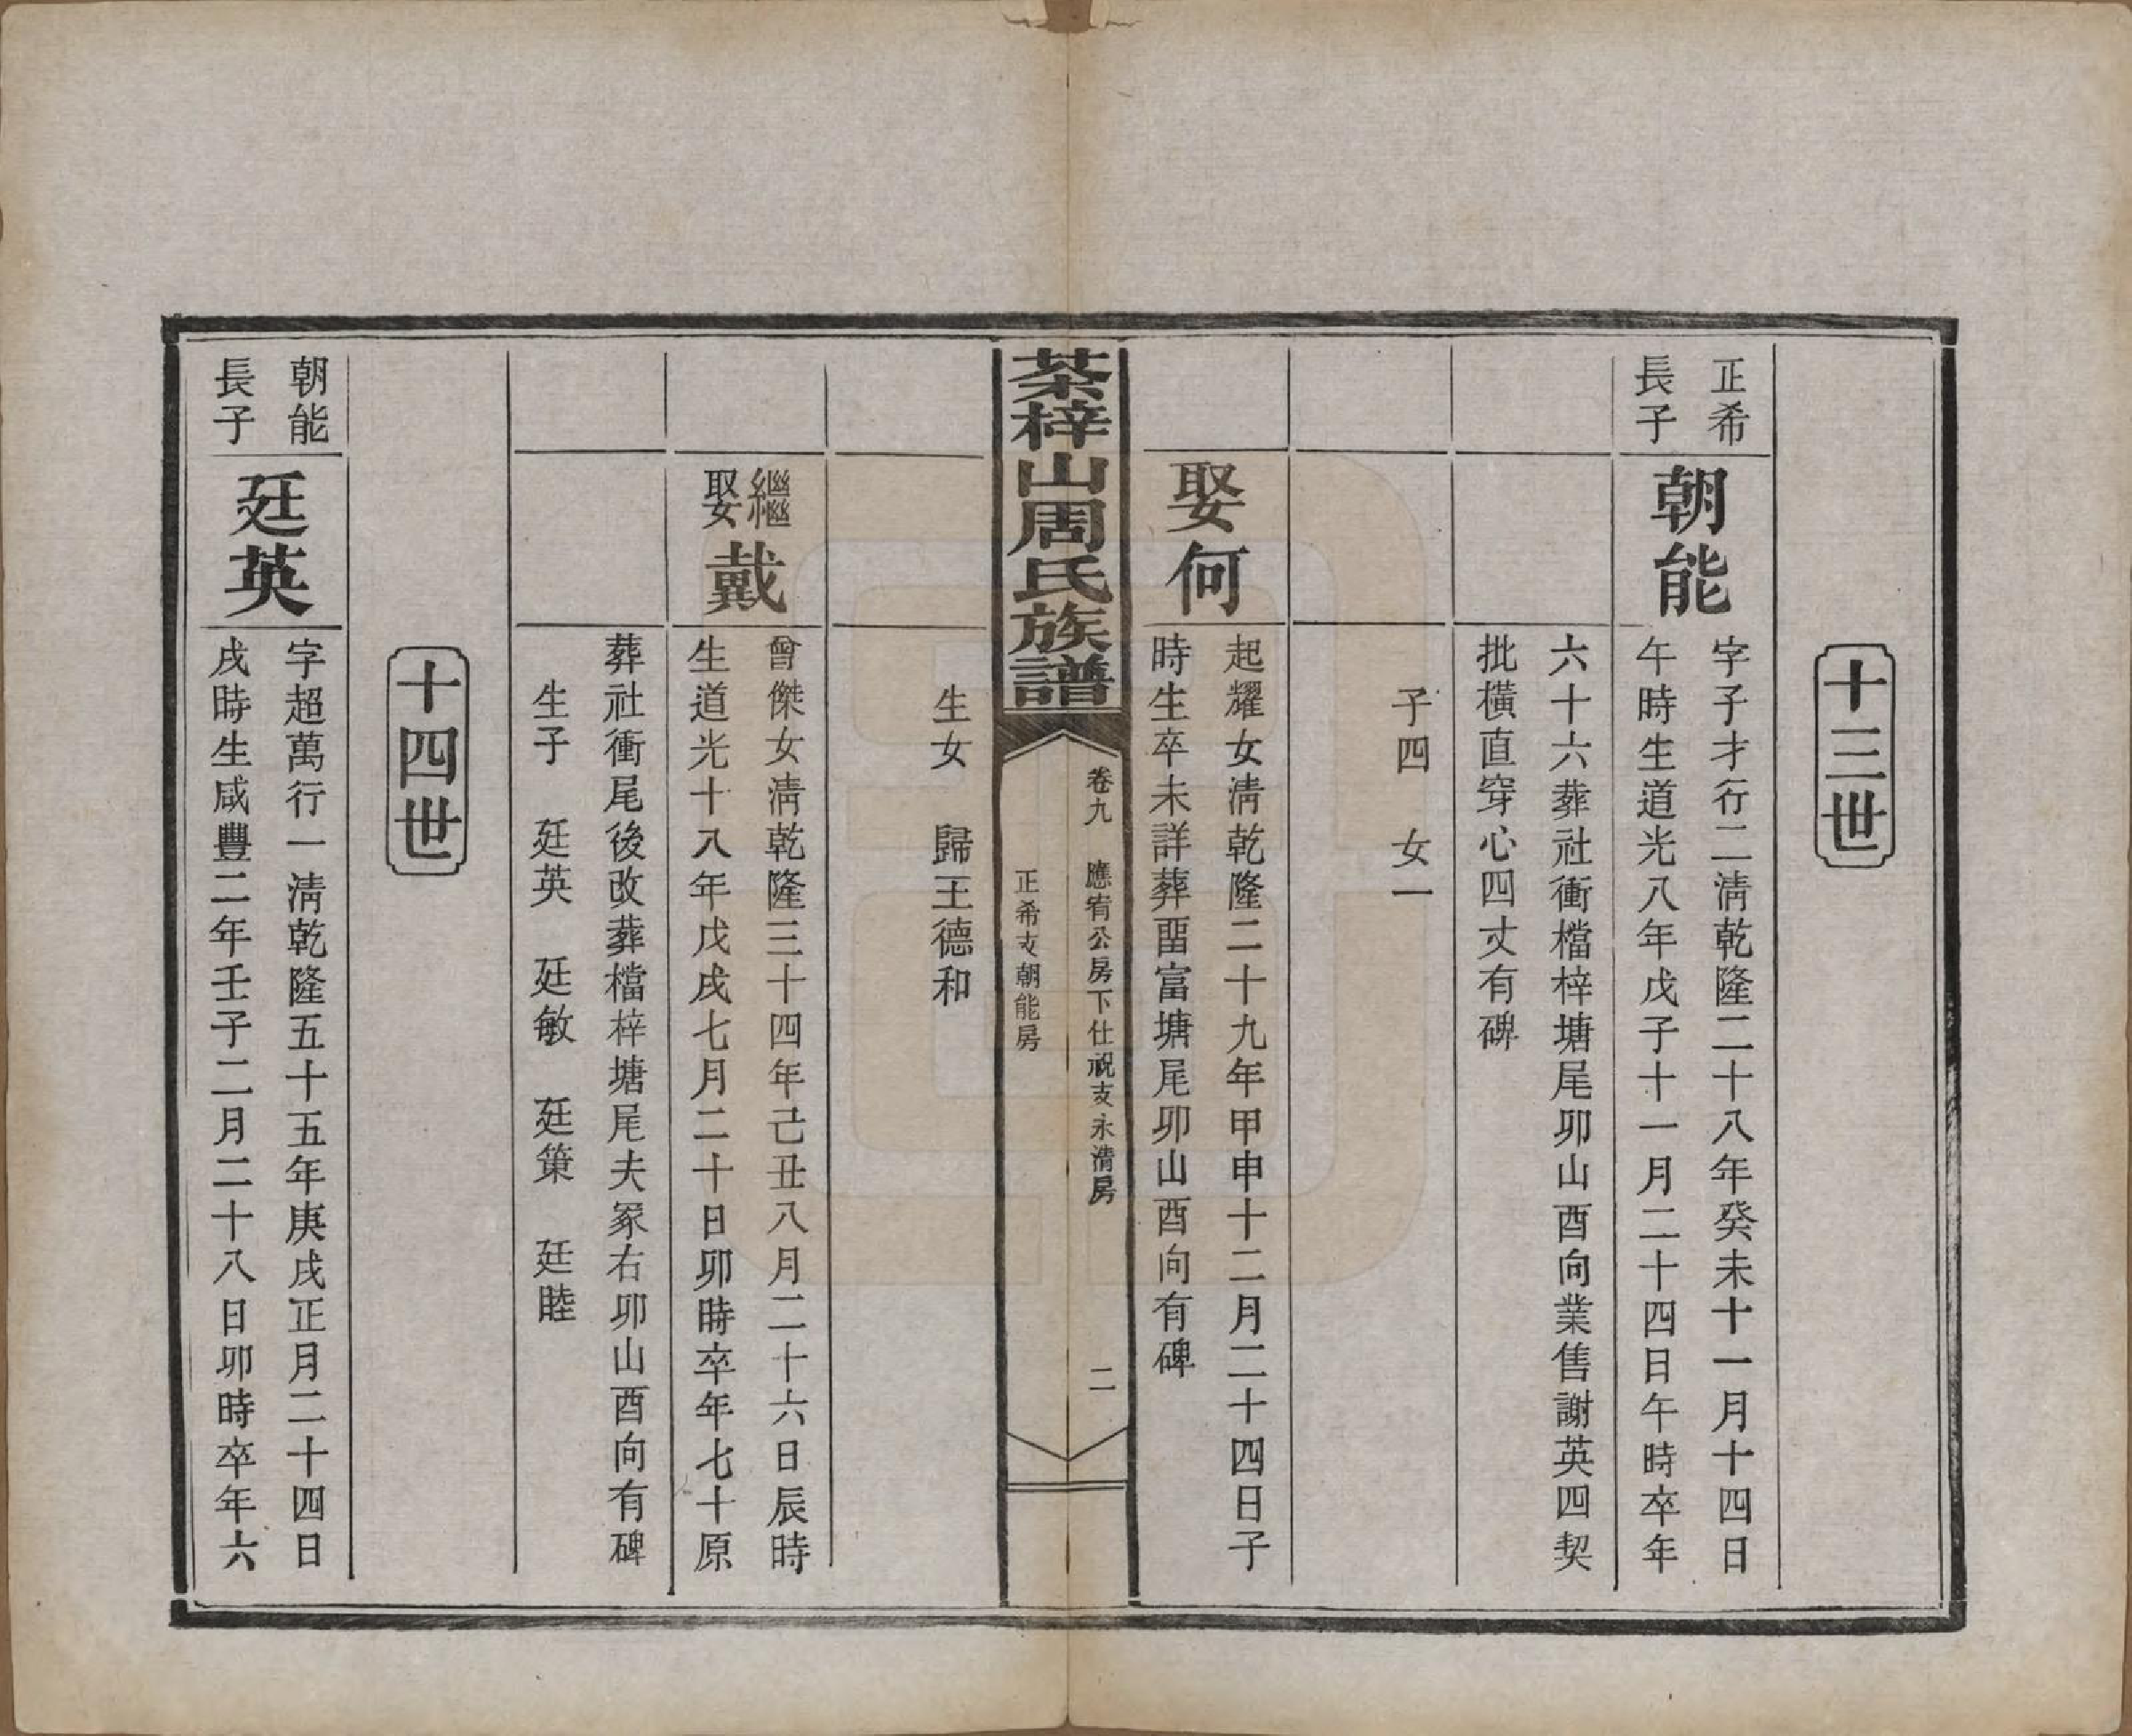 十三世
正希
長子
朝能
字子才行二淸乾隆二十八年癸未十一月十四日
午時生道光八年戊子十一月二十四日午時卒年
六十六葬社衝檔梓塘尾卯山酉向業售謝英四契
批橫直穿心四丈有碑
子四　女一
娶何
起耀女淸乾隆二十九年甲申十二月二十四日子
時生卒未詳葬畱富塘尾卯山酉向有碑
茶梓山周氏族譜
卷九　應宥公房下仕祝支永淸房
正希支朝能房
二
生女　歸王德和
繼
娶
戴
曾傑女淸乾隆三十四年己丑八月二十六日辰時
生道光十八年戊戌七月二十日卯時卒年七十原
葬社衝尾後改葬檔梓塘尾夫冢右卯山酉向有碑
生子　廷英　廷敏　廷策　廷睦
十四世
朝能
長子
廷英
字超萬行一淸乾隆五十五年庚戌正月二十四日
戌時生咸豐二年壬子二月二十八日卯時卒年六